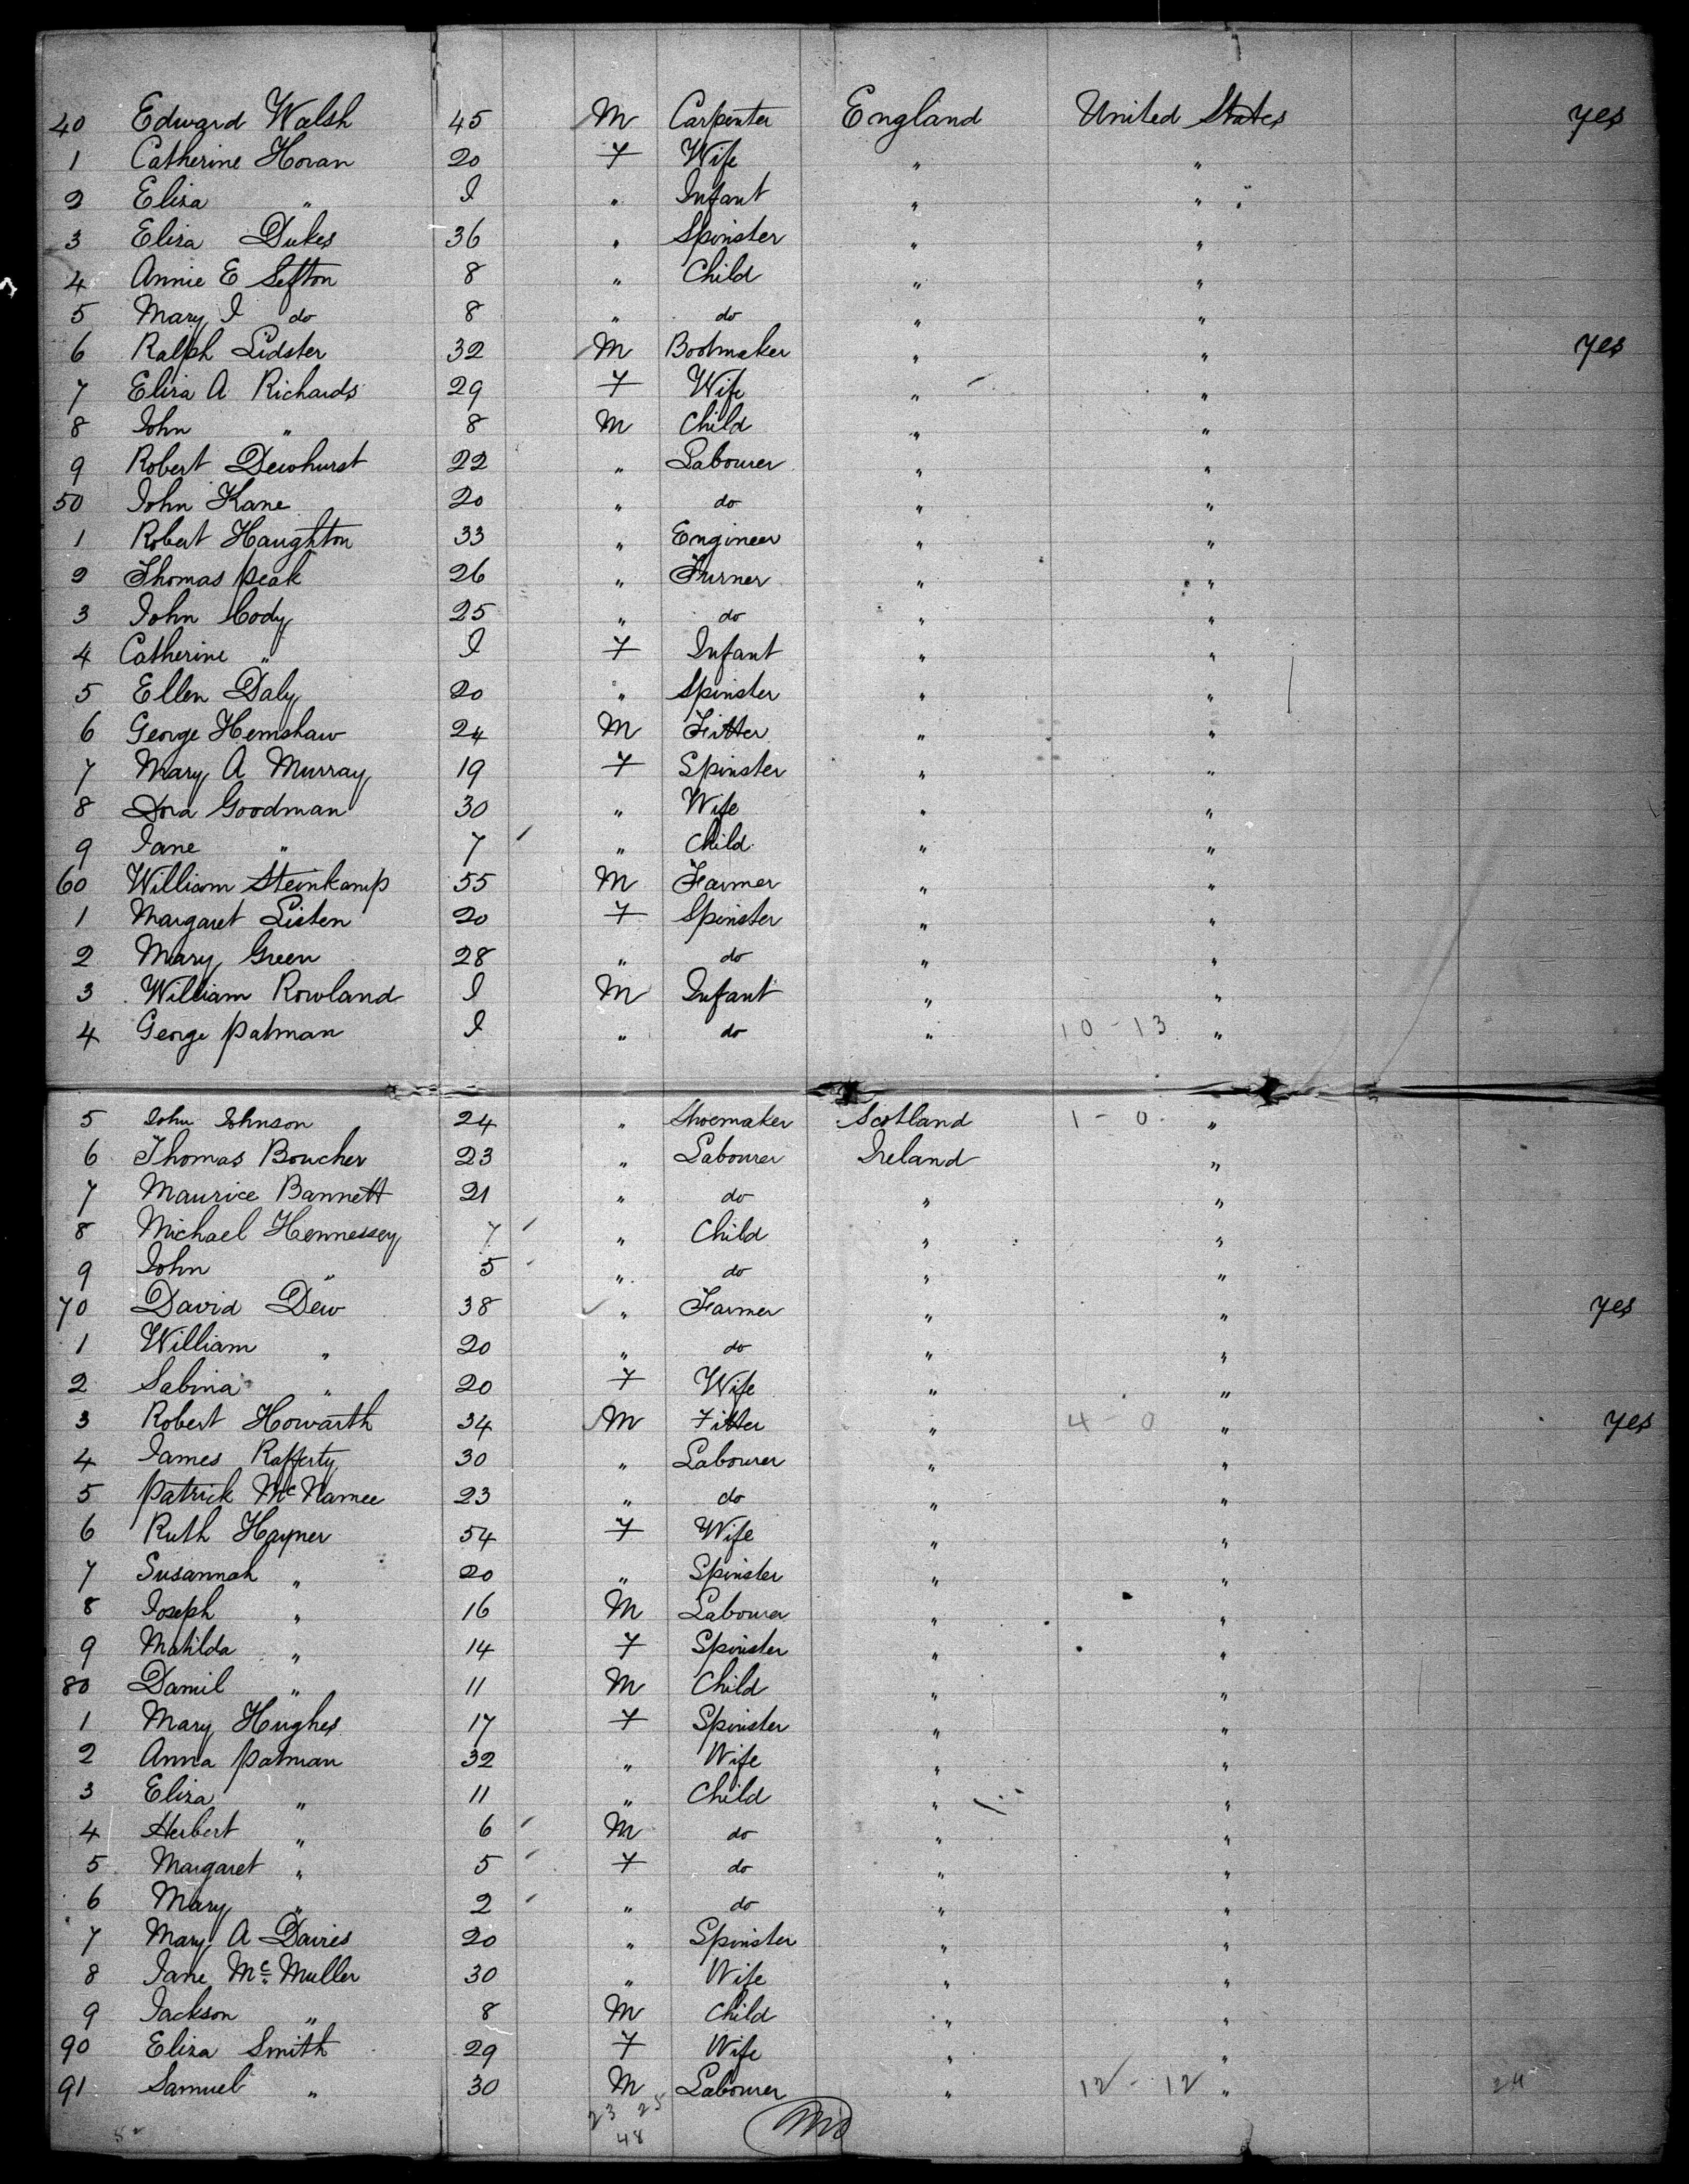 40 Edward Walsh 45 M Carpenter England United States yes
1 Catherine Horan 20 F Wife " "
2 Eliza " I " Infant " "
3 Eliza Dukes 36 " Spinster " "
4 Annie E Sefton 8 " Child " "
5 Mary I do 8 " do " "
6 Ralph Lidster 32 M Bootmaker " " yes
7 Eliza A Richards 29 F Wife " "
8 John " 8 M Child " "
9 Robert Dewhurst 22 " Labourer " "
50 John Kane 20 " do " "
1 Robert Haughton 33 " Engineer " "
2 Thomas Peak 26 " Turner " "
3 John Cody 25 " do " "
4 Catherine " I F Infant " "
5 Ellen Daly 20 " Spinster " "
6 George Hemshaw 24 M Fitter " "
7 Mary A Murray 19 F Spinster " "
8 Dora Goodman 30 " Wife " "
9 Jane " 7 " Child " "
60 William Steinkamp 55 M Farmer " "
1 Margaret Listen 20 F Spinster " "
2 Mary Green 28 " do " "
3 William Rowland I M Infant " "
4 George Patman I " do " 10 - 13 "
5 John Johnson 24 " Shoemaker Scotland 1 - 0 "
6 Thomas Boucher 23 " Labourer Ireland "
7 Maurice Bannett 21 " do " "
8 Michael Hennessey 7 " Child " "
9 John " 5 " do " "
70 David Dew 38 " Farmer " " yes
1 William " 20 " do " "
2 Sabina " 20 F Wife " "
3 Robert Howarth 34 M Fitter " 4 - 0 " yes
4 James Rafferty 30 " Labourer " "
5 Patrick McNamee 23 " do " "
6 Ruth Hayner 54 F Wife " "
7 Susannah " 20 " Spinster " "
8 Joseph " 16 M Labourer " "
9 Matilda " 14 F Spinster " "
80 Daniel " 11 M Child " "
1 Mary Hughes 17 F Spinster " "
2 Anna Patman 32 " Wife " "
3 Eliza " 11 " Child " "
4 Herbert " 6 M do " "
5 Margaret " 5 F do " "
6 Mary " 2 " do " "
7 Mary A Davies 20 " Spinster " "
8 Jane Mc Muller 30 " Wife " "
9 Jackson " 8 M Child " "
90 Eliza Smith 29 F Wife " "
91 Samuel " 30 M Labourer " 12 - 12 " 24
23 25
48